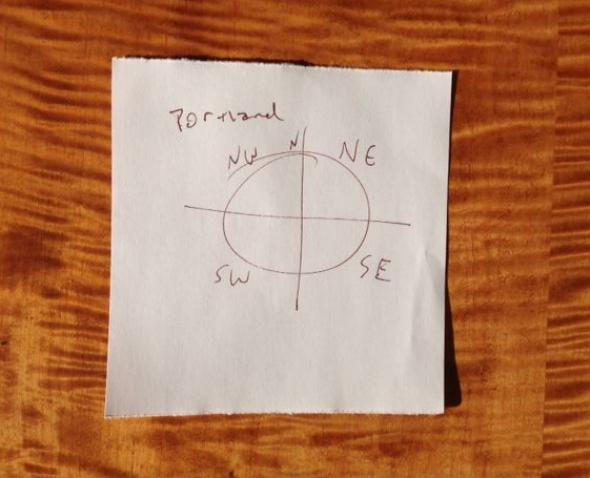 Portland
NW N NE
SW SE